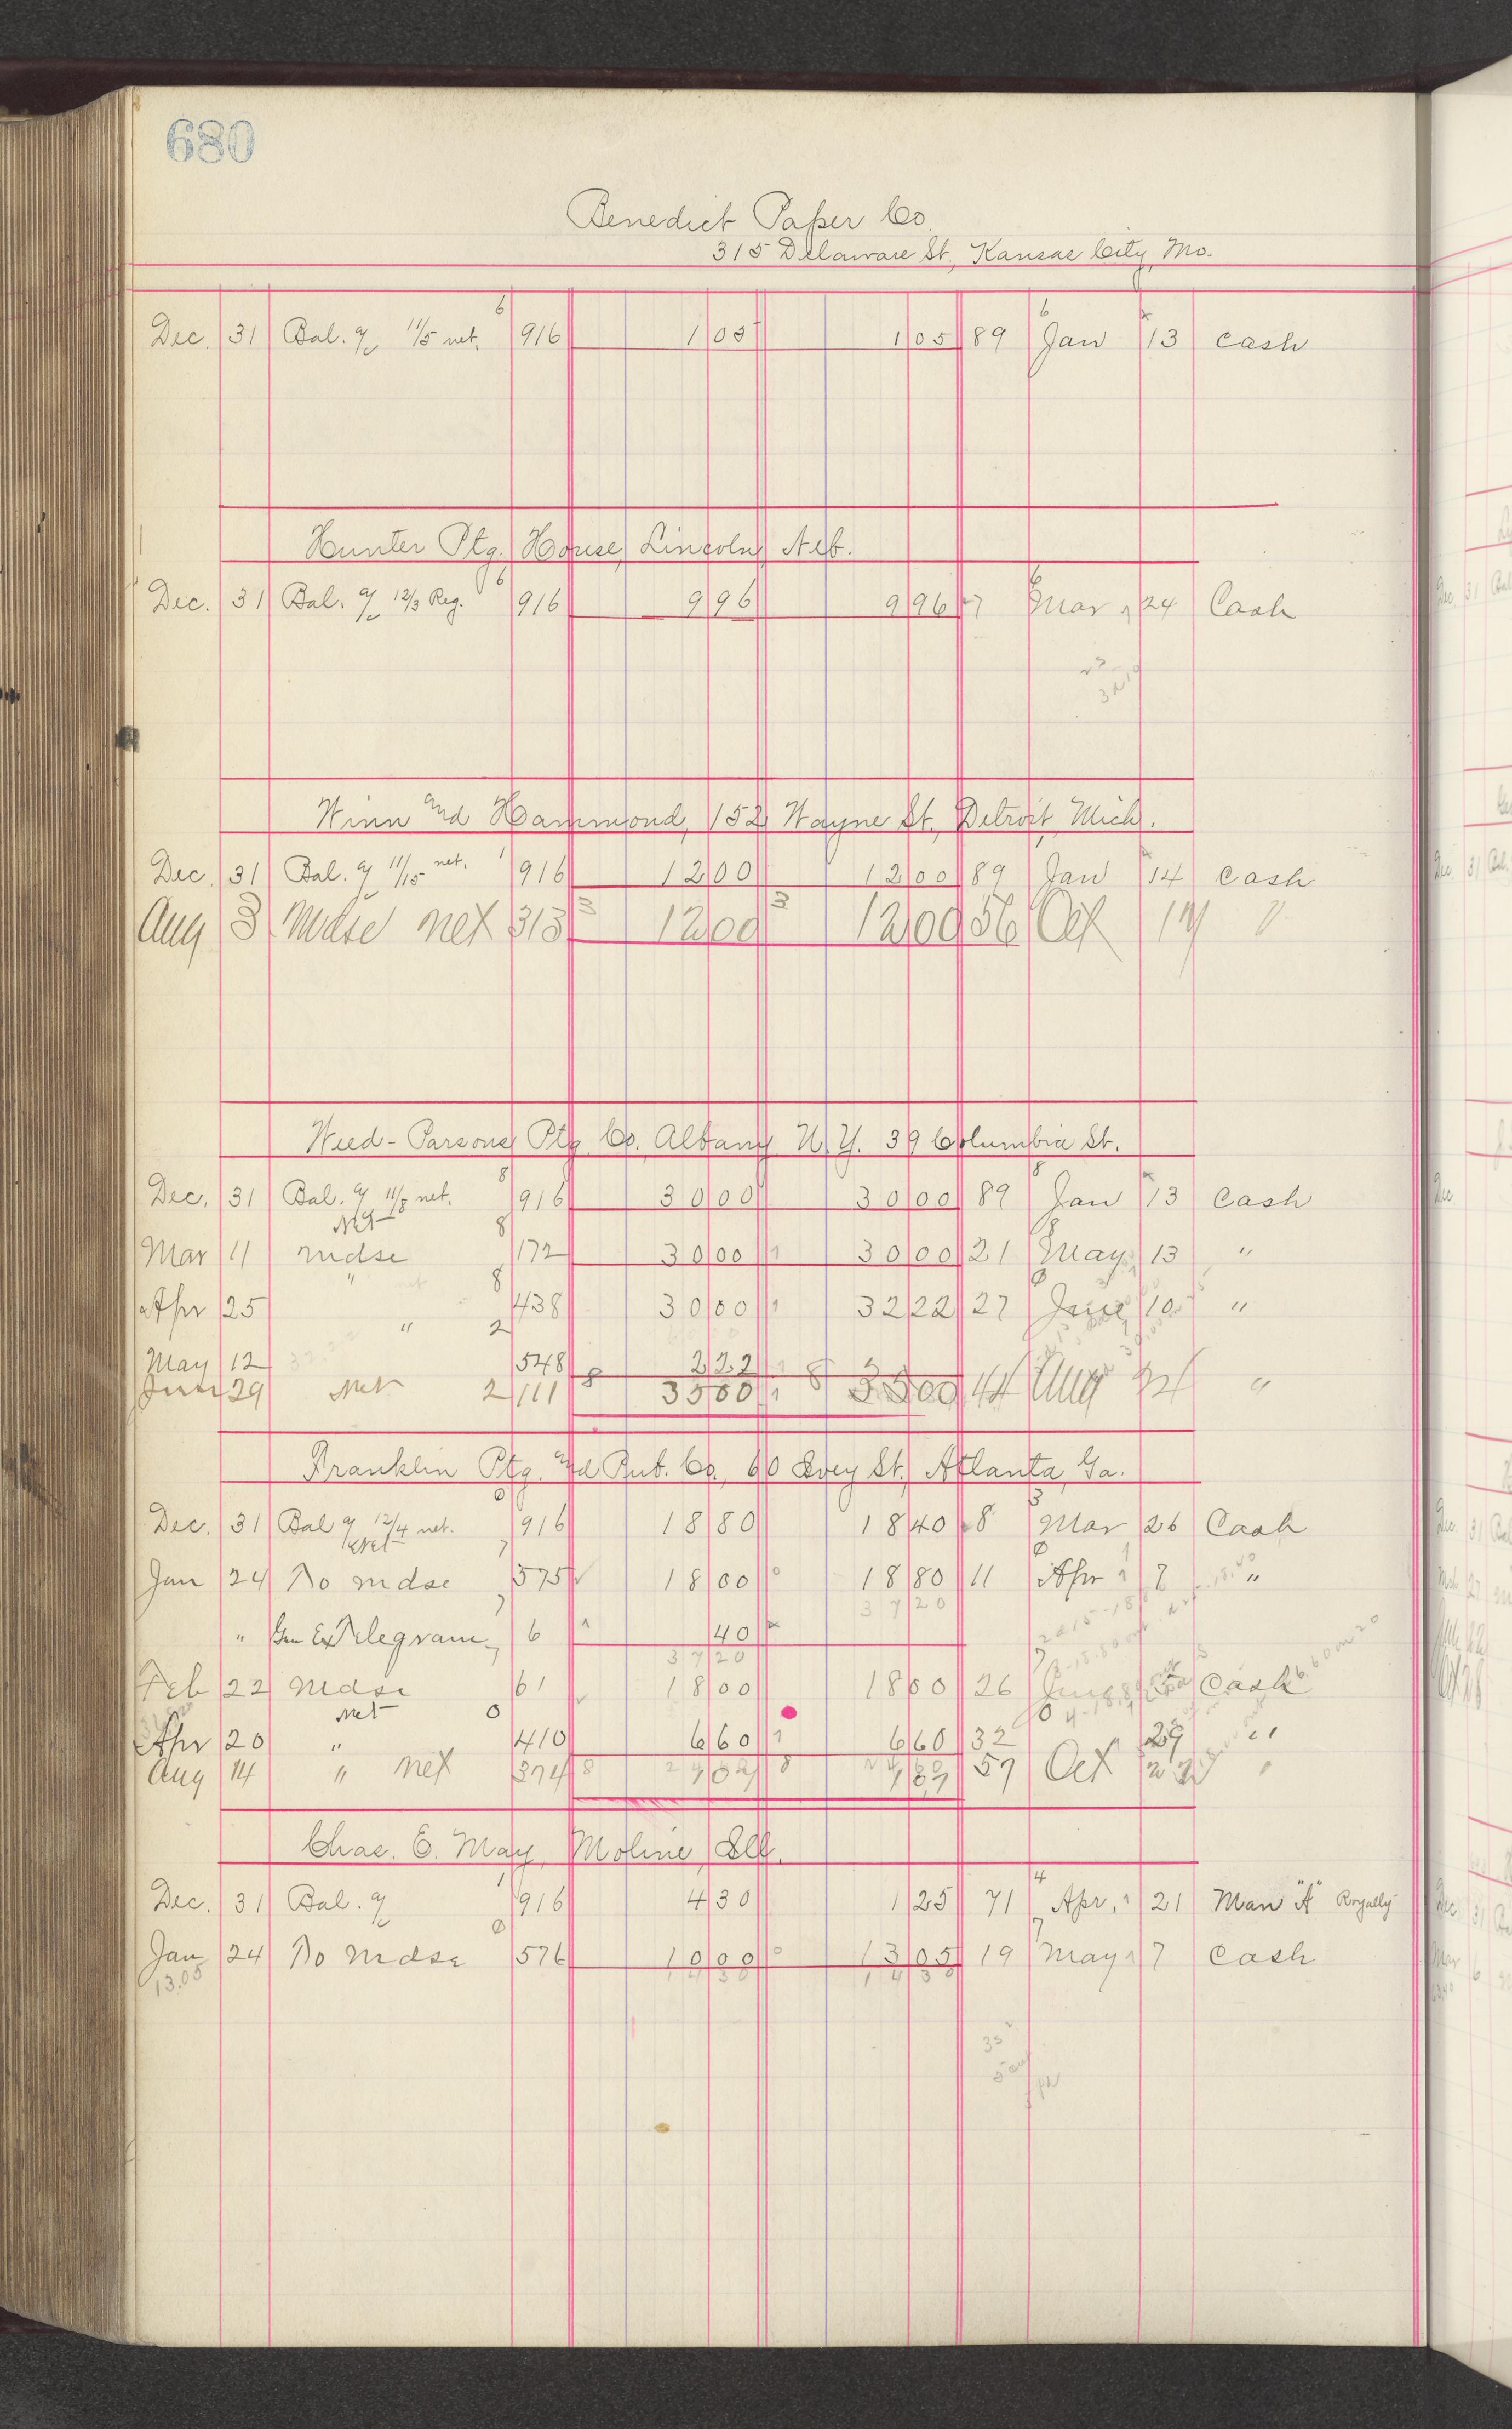 680
Benedict Paper Co.
315 Delaware St., Kansas City, Mo.
Dec. 31 Bal. a/c 11/5 net. 6 916 1 05 1 05 89 6 Jan 13 cash
Hunter Ptg. House, Lincoln, Neb.
Dec. 31 Bal. a/c 12/3 Reg. 6 916 9 96 9 96 7 6 Mar 24 Cash
Winn and Hammond, 152 Wayne St., Detroit, Mich.
Dec. 31 Bal. a/c 11/15 net. 1 916 12 00 12 00 89 Jan 14 cash
Aug 3 Mdse net 313 3 12 00 3 12 00 56 Oct 14 "
Weed-Parsons Ptg Co. Albany N.Y. 39 Columbia St.
Dec. 31 Bal. a/c 11/8 net. 8 916 30 00 30 00 89 8 Jan 13 cash
Mar 11 mdse Net 8 172 30 00 1 30 00 21 8 May 13 "
Apr 25 " 8 438 30 00 1 32 22 27 June 10 "
May 12 " 2 548 2 22
June 29 Net 2 111 8 35 00 1 8 35 00 44 Aug "
Franklin Ptg. and Pub. Co., 60 Ivey St., Atlanta, Ga.
Dec. 31 Bal a/c 12/4 net. 0 916 18 80 18 40 8 3 Mar 26 Cash
Jan 24 To mdse Net 7 575 18 00 0 18 80 11 0 Apr 7 "
37 20
" Gen Ex Telegram 7 6 40
37 20
Feb 22 mdse 61 18 00 18 00 26 June Cash
Apr 20 " Net 0 410 6 60 1 6 60 32 29 "
Aug 14 " net 374 8 8 57 Oct "
Chas. E. May, Moline, Ill.
Dec. 31 Bal. a/c 1 916 4 30 1 25 71 4 Apr. 21 Man "A" Royally
Jan 24 To mdse 0 576 10 00 0 13 05 19 7 May 7 cash
13.05 14 30 14 30